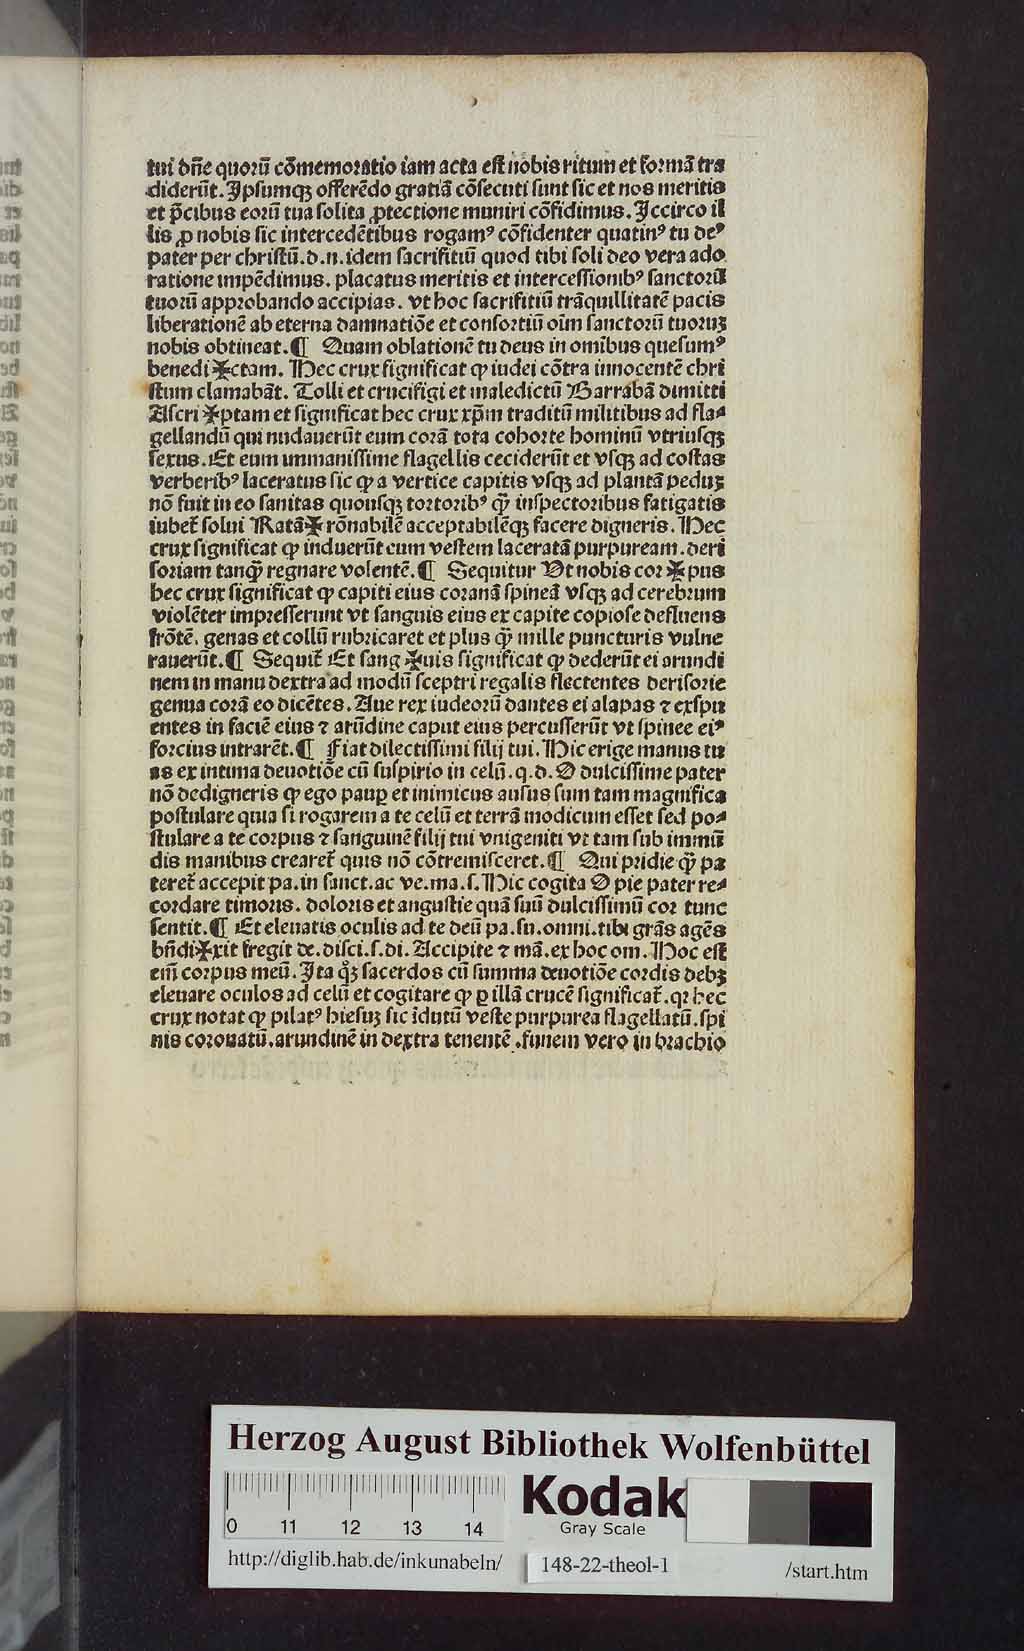 tui dñe quorū cōmemoratio iam acta est nobis ritum et formā tra
diderūt. Ipsumqꝫ offerēdo gratiā cōsecuti sunt sic et nos meritis
et p̄cibus eorū tua solita ꝓtectione muniri cōfidimus. Iccirco il
lis ꝓ nobis sic intercedētibus rogamꝰ cōfidenter quatinꝰ tu deꝰ
pater per christū.d.n.idem sacrifitiū quod tibi soli deo vera ado
ratione impēdimus. placatus meritis et intercessionibꝰ sanctorū
tuorū approbando accipias. vt hoc sacrifitiū trāquillitatē pacis
liberationē ab eterna damnatiōe et consortiū oīm sanctorū tuoruꝫ
nobis obtineat.¶ Quam oblationē tu deus in omībus quesumꝰ
benedi✠ctam. Hec crux significat ꝙ iudei cōtra innocentē chri
stum clamabāt. Tolli et crucifigi et maledictū Barrabā dimitti
Ascri✠ptam et significat hec crux xp̄m traditū militibus ad fla⸗
gellandū qui nudauerūt eum corā tota cohorte hominū vtriusqꝫ
sexus. Et eum immanissime flagellis ceciderūt et vsqꝫ ad costas
verberibꝰ laceratus sic ꝙ a vertice capitis vsqꝫ ad plantā peduꝫ
nō fuit in eo sanitas quousqꝫ tortoribꝰ qꝫ̄ inspectoribus fatigatis
iubet̄ solui Ratā✠ rōnabilē acceptabilēqꝫ facere digneris. Hec
crux significat ꝙ induerūt eum vestem laceratā purpuream.deri
soriam tanqꝫ̄ regnare volentē.¶ Sequitur Vt nobis cor✠pus
hec crux significat ꝙ capiti eius coranā spineā vsqꝫ ad cerebrum
violēter impresserunt vt sanguis eius ex capite copiose defluens
frōtē. genas et collū rubricaret et plus qꝫ̄ mille puncturis vulne
rauerūt.¶ Sequit̄ Et sang✠uis significat ꝙ dederūt ei arundi
nem in manu dextra ad modū sceptri regalis flectentes derisorie
genua corā eo dicētes. Aue rex iudeorū dantes ei alapas ⁊ exspu
entes in faciē eius ⁊ arūdine caput eius percusserūt vt spinee eiꝰ
forcius intrarēt.¶ Fiat dilectissimi filij tui. Hic erige manus tu
as ex intima deuotiōe cū suspirio in celū.q.d. O dulcissime pater
nō dedigneris ꝙ ego paup̱ et inimicus ausus sum tam magnifica
postulare quia si rogarem a te celū et terrā modicum esset sed po⸗
stulare a te corpus ⁊ sanguinē filij tui vnigeniti vt tam sub immū
dis manibus crearet̄ quis nō cōtremisceret.¶ Qui pridie qꝫ̄ pa
teret̄ accepit pa.in sanct.ac ve.ma.s. Hic cogita O pie pater re⸗
cordare timoris. doloris et angustie quā suū dulcissimū cor tunc
sentit.¶ Et eleuatis oculis ad te deū pa.su.omni.tibi grās agēs
bn̄di✠xit fregit de.disci.s.di. Accipite ⁊ mā.ex hoc om. Hoc est
em̄ corpus meū. Ita qͦꝫ sacerdos cū summa deuotiōe cordis debꝫ
eleuare oculos ad celū et cogitare ꝙ ꝑ illā crucē significat̄.qꝛ hec
crux notat ꝙ pilatꝰ hiesuꝫ sic īdutū veste purpurea flagellatū.spi
nis coronatū.arundinē in dextra tenentē .funem vero in brachio
Herzog August Bibliothek Wolfenbüttel
Kodak
Gray Scale
0 11 12 13 14
http://diglib.hab.de/inkunabeln/ 148-22-theol-1 /start.htm